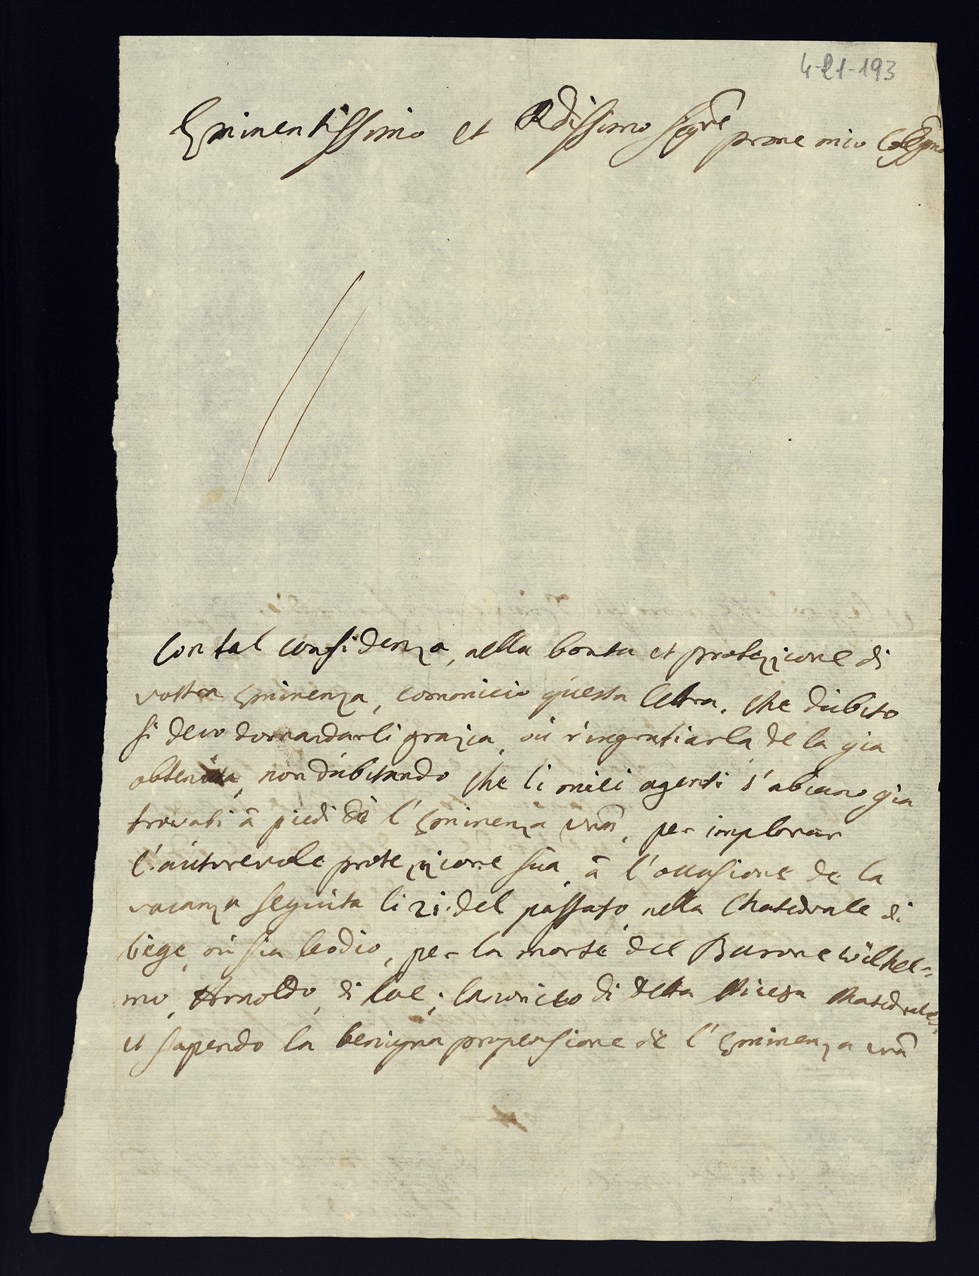 4-21-193
Eminentissimo et Rdissimo Sigre prone mio Colmo
Con tal confidenza, nella bonta et protezzione di
vostra Eminenza, comonicio questa lettra, che dubito
si devo domandarli grazia, où ringratiarla de la gia
obtenuta, non dubitando che li miei agenti s'abiano gia
trovati â piedi dè l'Eminenza vrâ, per implorar
l'autorevole protezzione sua, â l'occasione de la
vacanza seguita li 21. del passato, nella Chatedrale di
liege, où sia leodio, per la morte del Barone Wilhel=
mo, Arnoldo, di ; canonico di detta Chiesa Chatedrale,
et sapendo la benigna propensione dè l'Eminenza vrâ